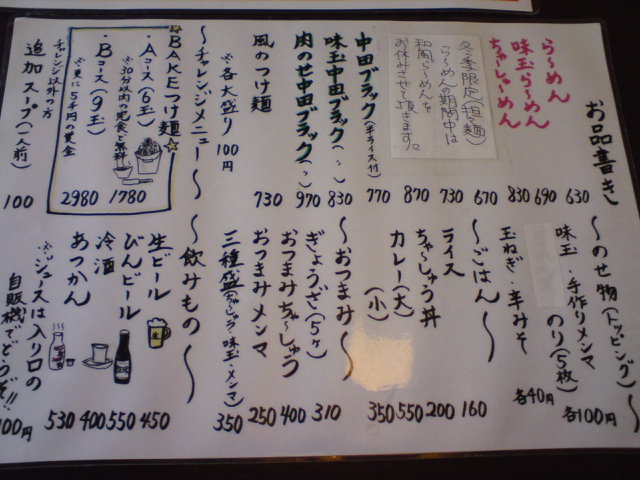 お品書き
ら〜めん 630
味玉ら〜めん 690
ちゃしゅ〜めん 830
冬季限定(担々麺)
ら〜めんの期間中は
和風ら〜めんを
お休みさせて頂きます。
670
730
870
中田ブラック(半ライス付) 770
味玉中田ブラック(〃) 830
肉のせ中田ブラック(〃) 970
風のつけ麺 730
※各大盛り100円
〜チャレンジメニュー〜
☆BAKEつけ麺☆
・Aコース(6玉) 1780
※30分以内の完食で無料
・Bコース(9玉) 2980
※更に5千円の賞金
チャレンジ以外の方
追加スープ(一人前) 100
〜のせ物(トッピング)〜
味玉・手作りメンマ
のり(5枚) 各100円
玉ねぎ・辛みそ 各40円
〜ごはん〜
ライス 160
ちゃ〜しゅう丼 200
カレー(大) 550
(小) 350
〜おつまみ〜
ぎょうざ(5ヶ) 310
おつまみちゃ〜しゅう 400
おつまみメンマ 250
三種盛(チャーシュー・味玉・メンマ) 350
〜飲みもの〜
生ビール 450
びんビール 550
冷酒 400
あつかん 530
※ジュースは入り口の
自販機でどうぞ!! 100円